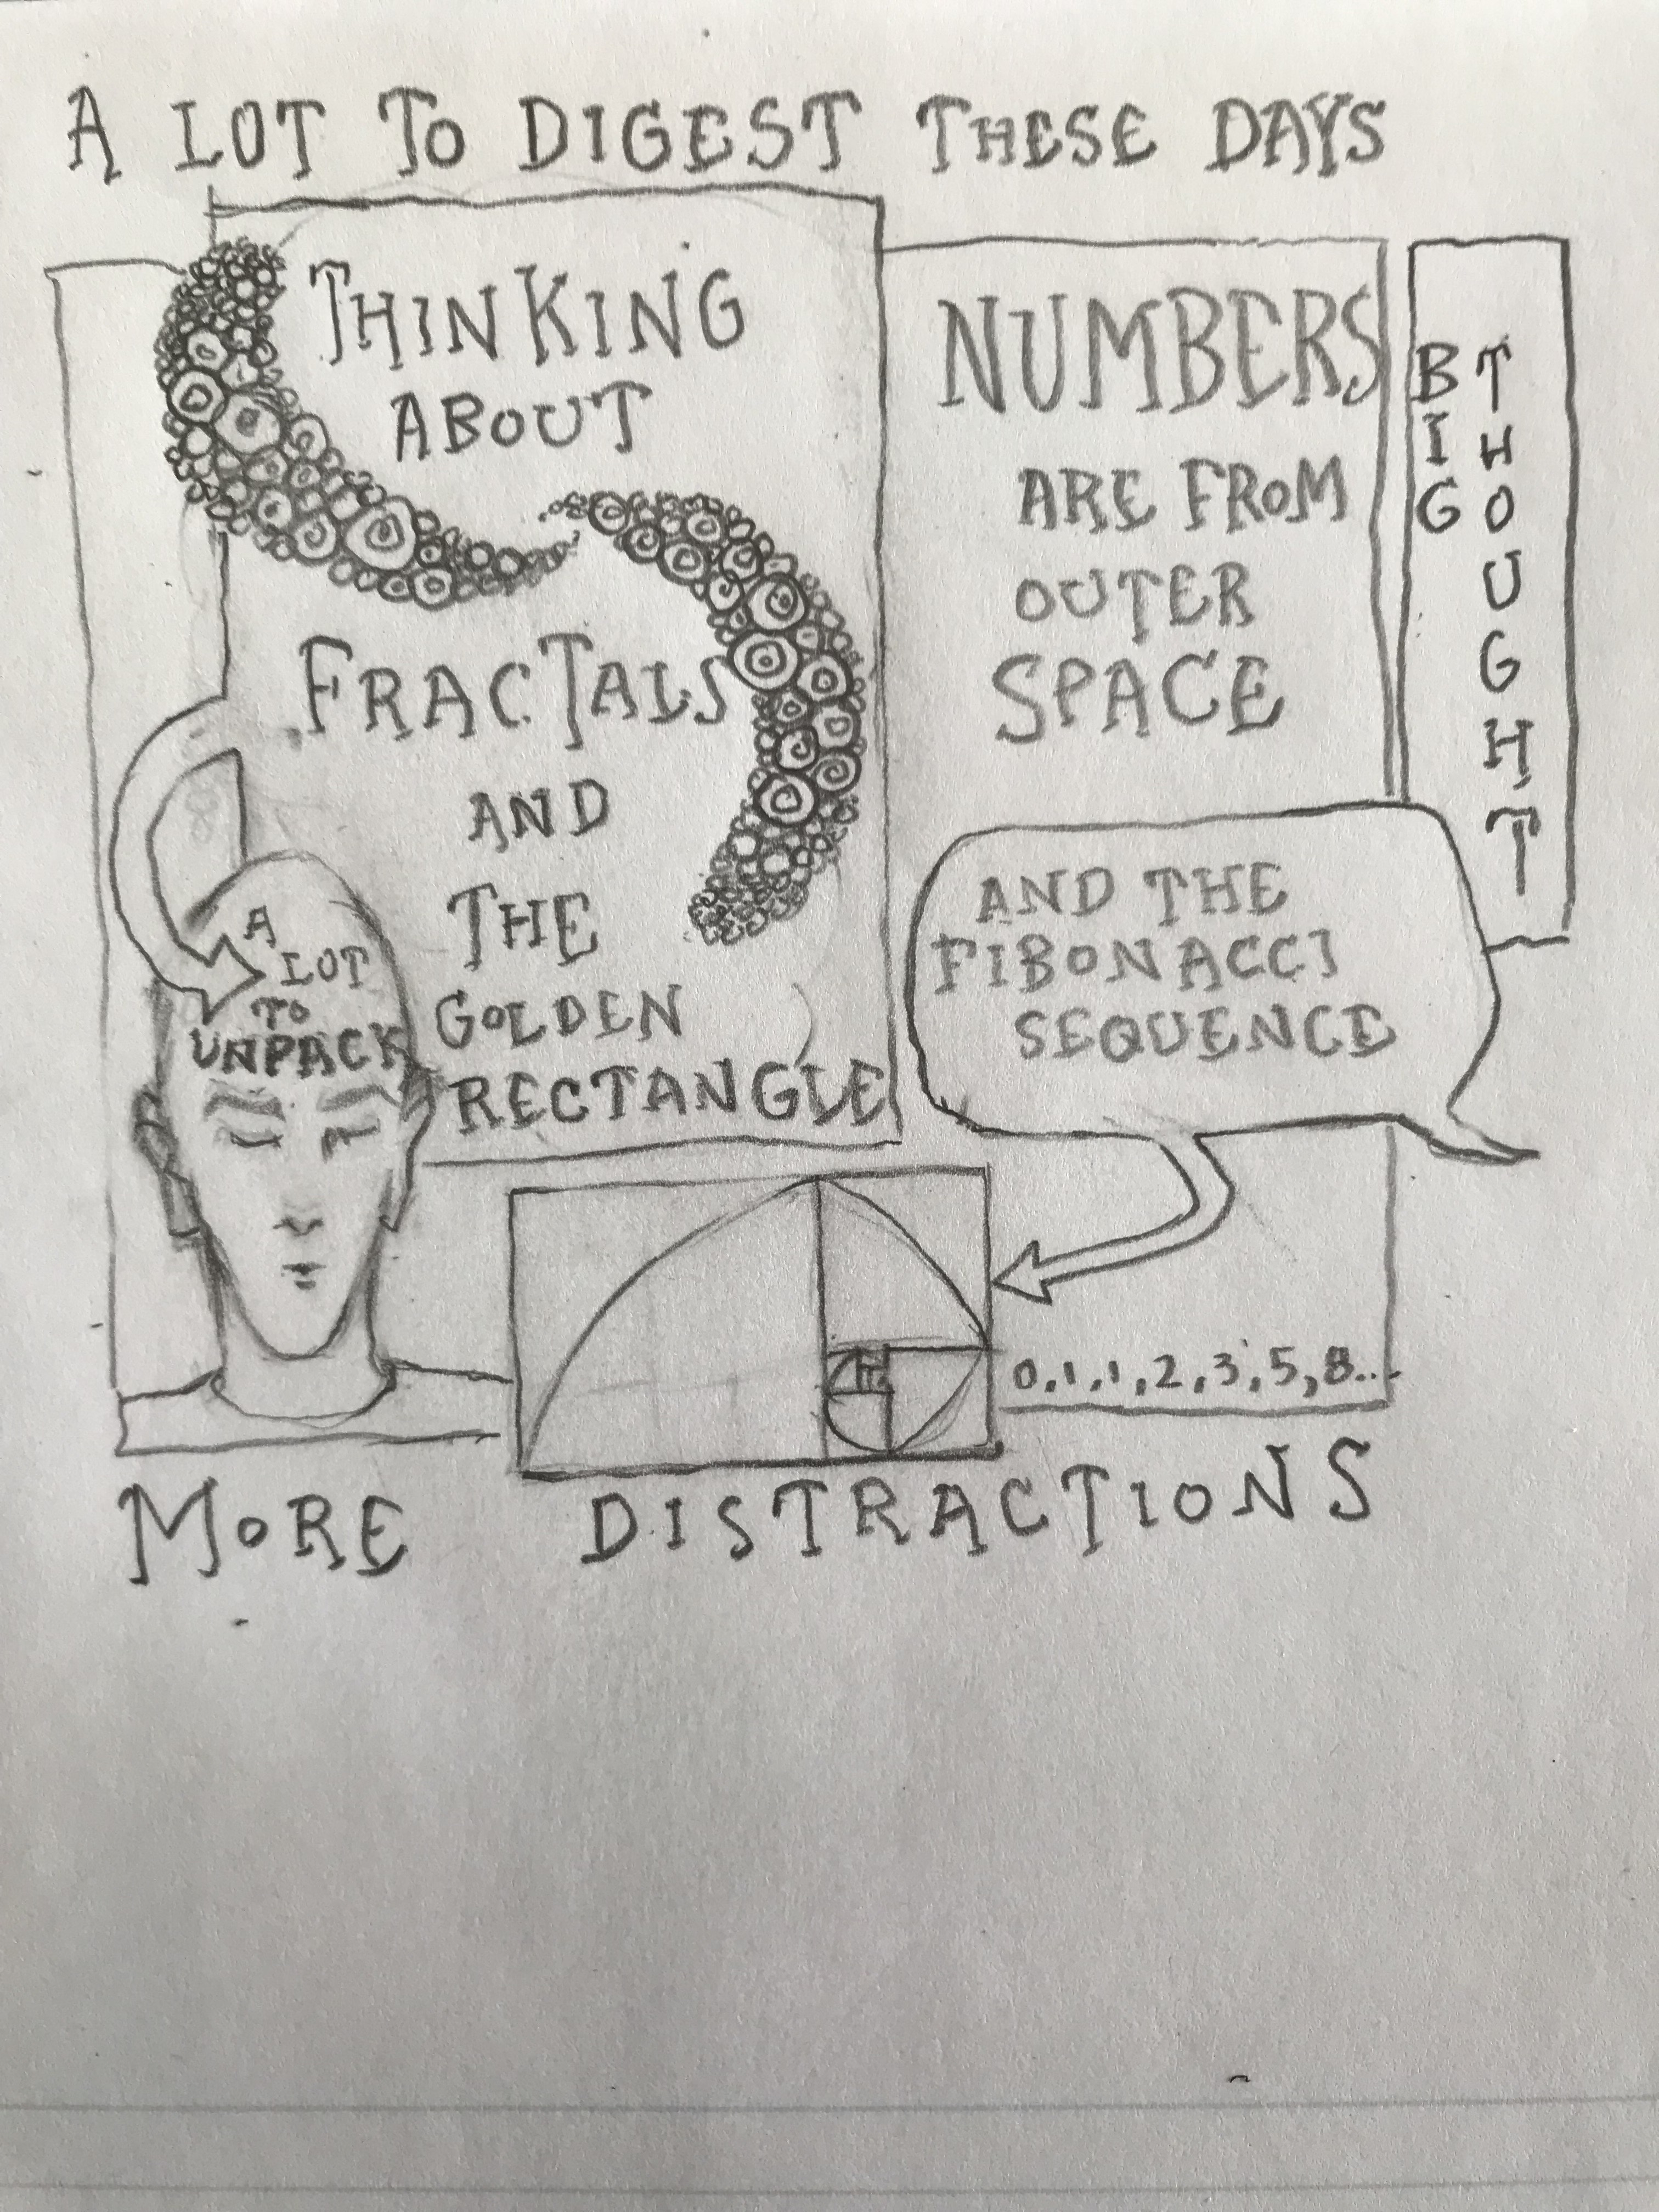 A LOT TO DIGEST THESE DAYS
THINKING
ABOUT
FRACTALS
AND
THE
GOLDEN
RECTANGLE
NUMBERS
ARE FROM
OUTER
SPACE
BIG
THOUGHT
A
LOT
TO
UNPACK
AND THE
FIBONACCI
SEQUENCE
0,1,1,2,3,5,8...
MORE DISTRACTIONS